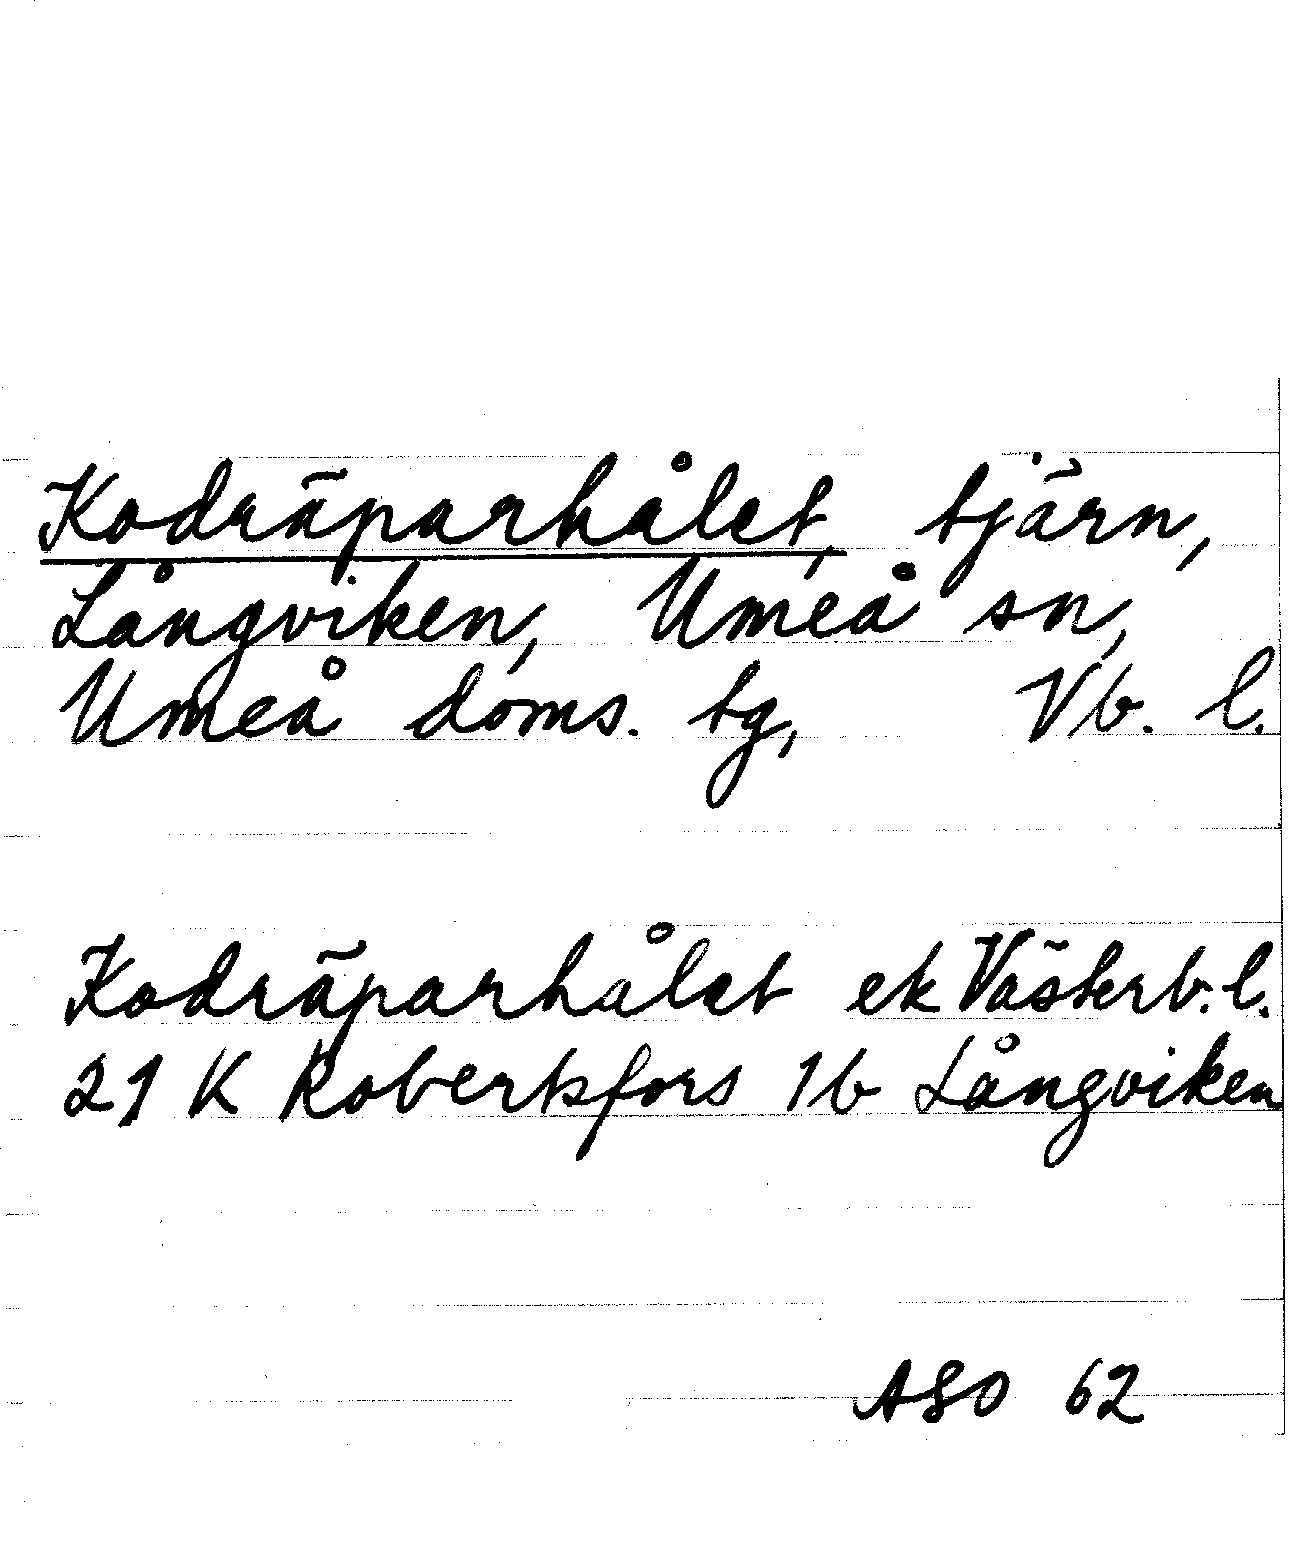 Kodräparhålet, tjärn,
Långviken, Umeå sn,
Umeå doms. tg, Vb. l.
Kodräparhålet ek Västerb. l.
21 K Robertsfors 1b Långviken
ASO 62